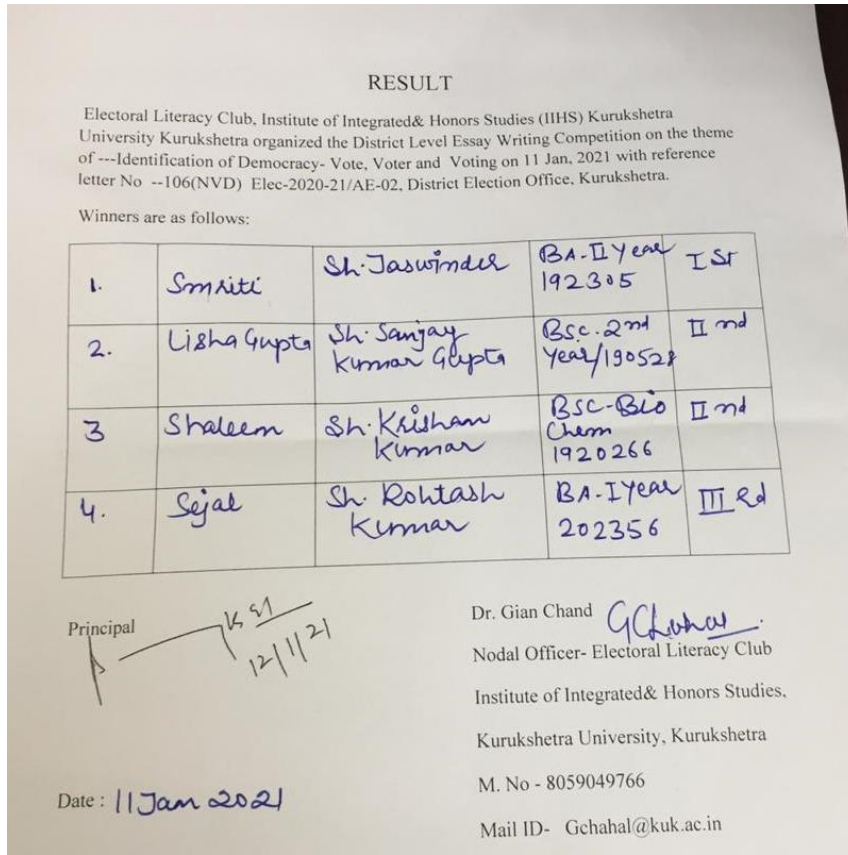 RESULT
Electoral Literacy Club, Institute of Integrated& Honors Studies (IIHS) Kurukshetra
University Kurukshetra organized the District Level Essay Writing Competition on the theme
of ---Identification of Democracy- Vote, Voter and Voting on 11 Jan, 2021 with reference
letter No --106(NVD) Elec-2020-21/AE-02, District Election Office, Kurukshetra.
Winners are as follows:
1. Smriti Sh. Jaswinder BA-II Year I St
192305
2. Lisha Gupta Sh. Sanjay BSc. 2nd II nd
Kumar Gupta Year/190528
3 Shaleem Sh. Krishan BSC-Bio II nd
Kumar Chem
1920266
4. Sejal Sh. Rohtash BA-I Year III Rd
Kumar 202356
Principal
12/1/21
Dr. Gian Chand GChahal
Nodal Officer- Electoral Literacy Club
Institute of Integrated& Honors Studies,
Kurukshetra University, Kurukshetra
M. No - 8059049766
Mail ID- Gchahal@kuk.ac.in
Date : 11 Jan 2021